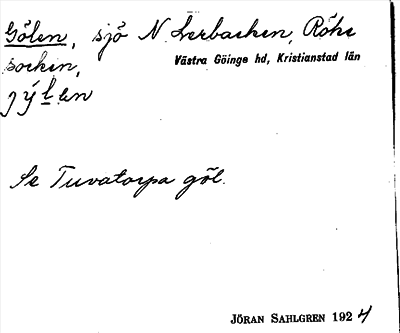 Gölen, sjö N Lerbacken, Röke
socken,
Västra Göinge hd, Kristianstad län
jýlen
Se Tuvatorpa göl.
JÖRAN SAHLGREN 1924